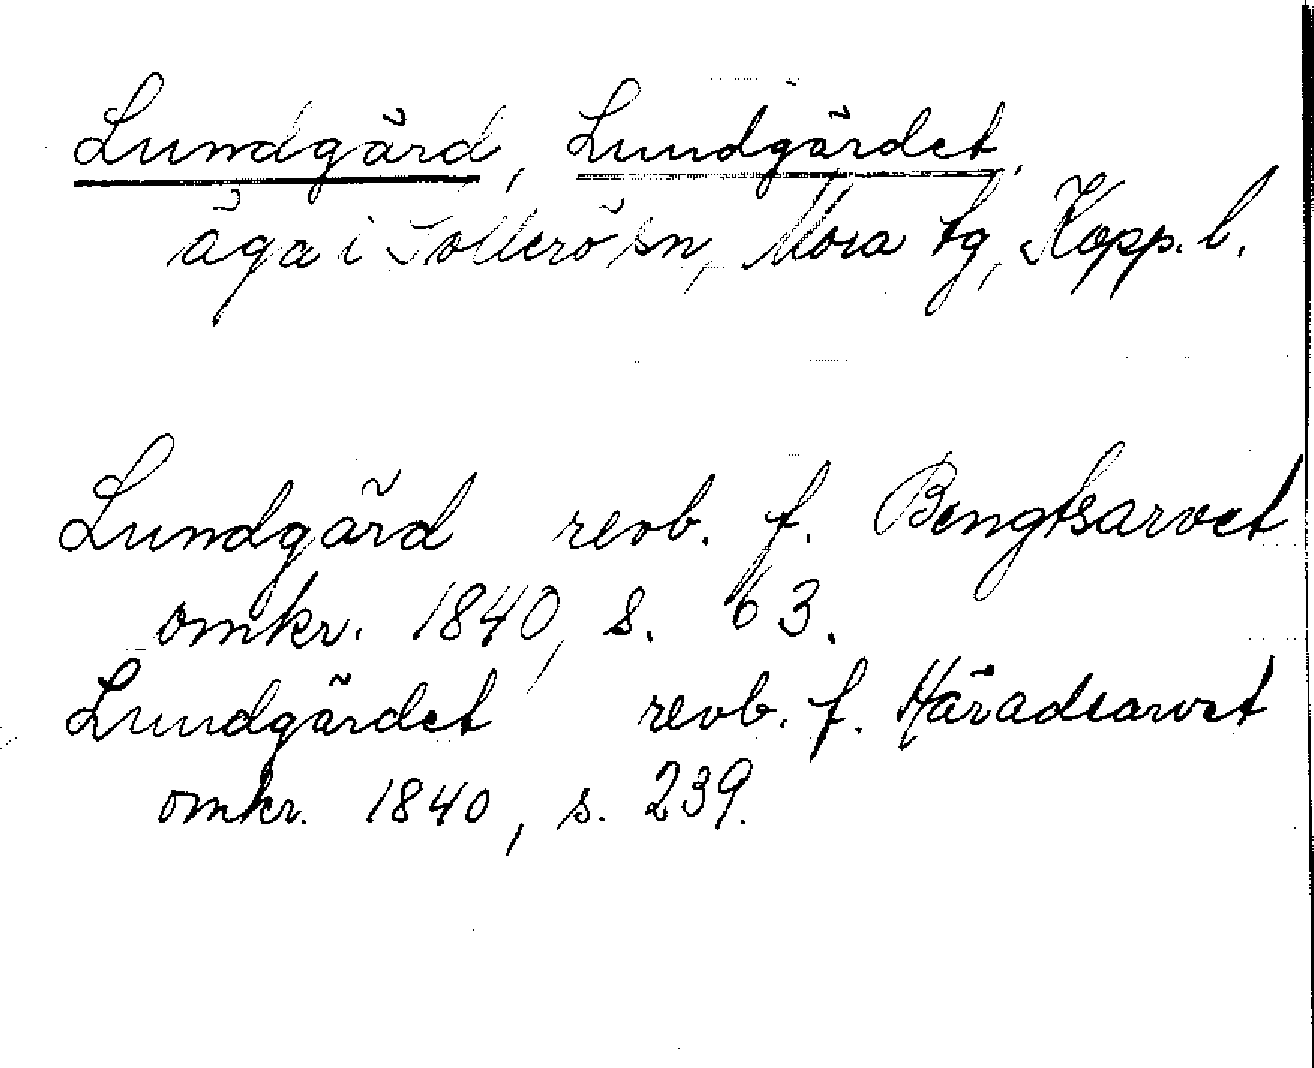 Lundgärd, Lundgärdet,
äga i Sollerö sn, Mora tg, Kopp. l.
Lundgärd revb. f. Bengtsarvet
omkr. 1840, s. 63.
Lundgärdet revb. f. Häradsarvet
omkr. 1840, s. 239.